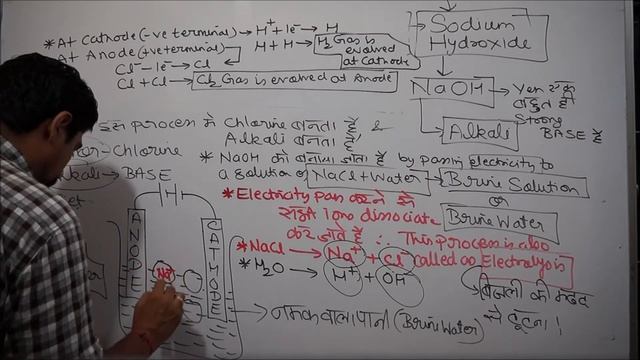 * At Cathode (-ve terminal) → H⁺ + 1e⁻ → H
H + H → H₂ Gas is evolved at Cathode
At Anode (+ve terminal)
Cl⁻ - 1e⁻ → Cl
Cl + Cl → Cl₂ Gas is evolved at Anode
Sodium
Hydroxide
NaOH → 
Strong
BASE है
Alkali
इस process में Chlorine बनता है &
Alkali बनता है
Chlorine
→ BASE
* NaOH को बनाया जाता है by passing electricity to
a solution of NaCl + Water → Brine Solution
or
Brine Water
* Electricity pass करने से
Ions dissociate
कर जाते है ∴ This process is also
called as Electrolysis
* NaCl → Na⁺ + Cl⁻
* H₂O → H⁺ + OH⁻
बिजली की मदद
से टूटना !
ANODE
CATHODE
H
Na
नमक वाला पानी (Brine Water)